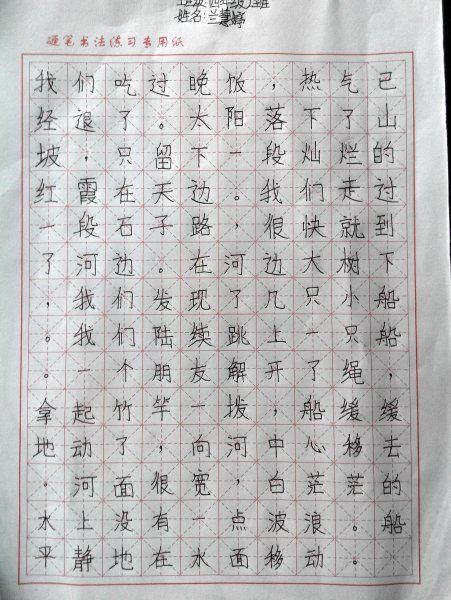 四年级 班
姓名:兰慧婷
硬笔书法练习专用纸
我们吃过晚饭，热气已
经退了。太阳落下了山
坡，只留下一段灿烂的
红霞在天边。我们走过
一段石子路，很快就到
了河边。在河边大树下
，我们发现了几只小船
。我们陆续跳上一只船
。一个朋友解开了绳，
拿起竹竿一拨，船缓缓
地动了，向河中心移去
。河面很宽，白茫茫的
水上没有一点波浪。船
平静地在水面移动。